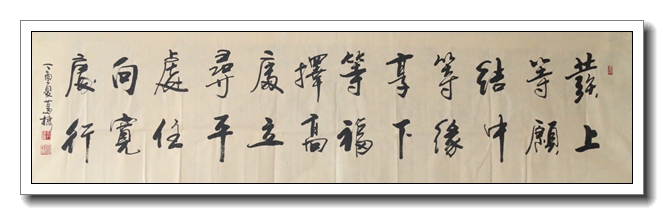 發上
等願
結中
等緣
享下
等福
擇高
處立
尋平
處住
向寬
處行
丁酉夏